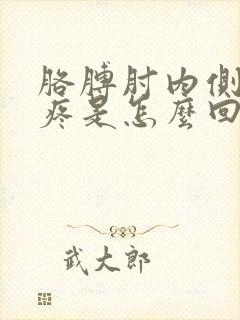 胳膊肘内側
疼是怎麼回
武大郎